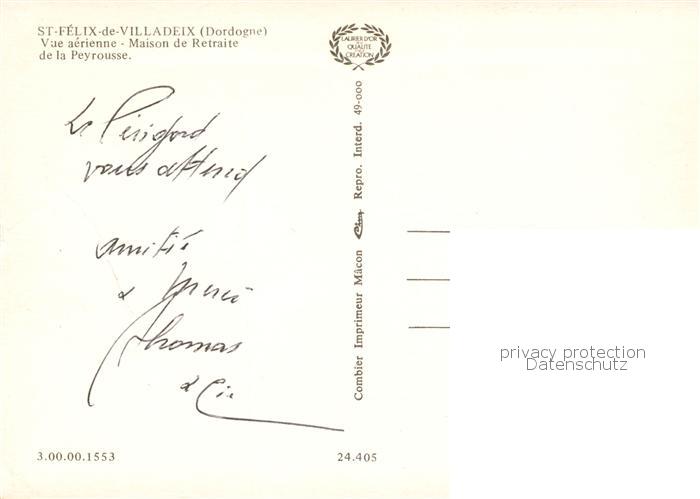 ST-FÉLIX-de-VILLADEIX (Dordogne)
Vue aérienne - Maison de Retraite
de la Peyrousse.
LAURIER D'OR
DE
QUALITÉ
CRÉATION
Le Périgord
vous attend
amitié
&
Thomas
& Cie
Combier Imprimeur Mâcon Cim Repro. Interd. 49-000
privacy protection
Datenschutz
3.00.00.1553
24.405